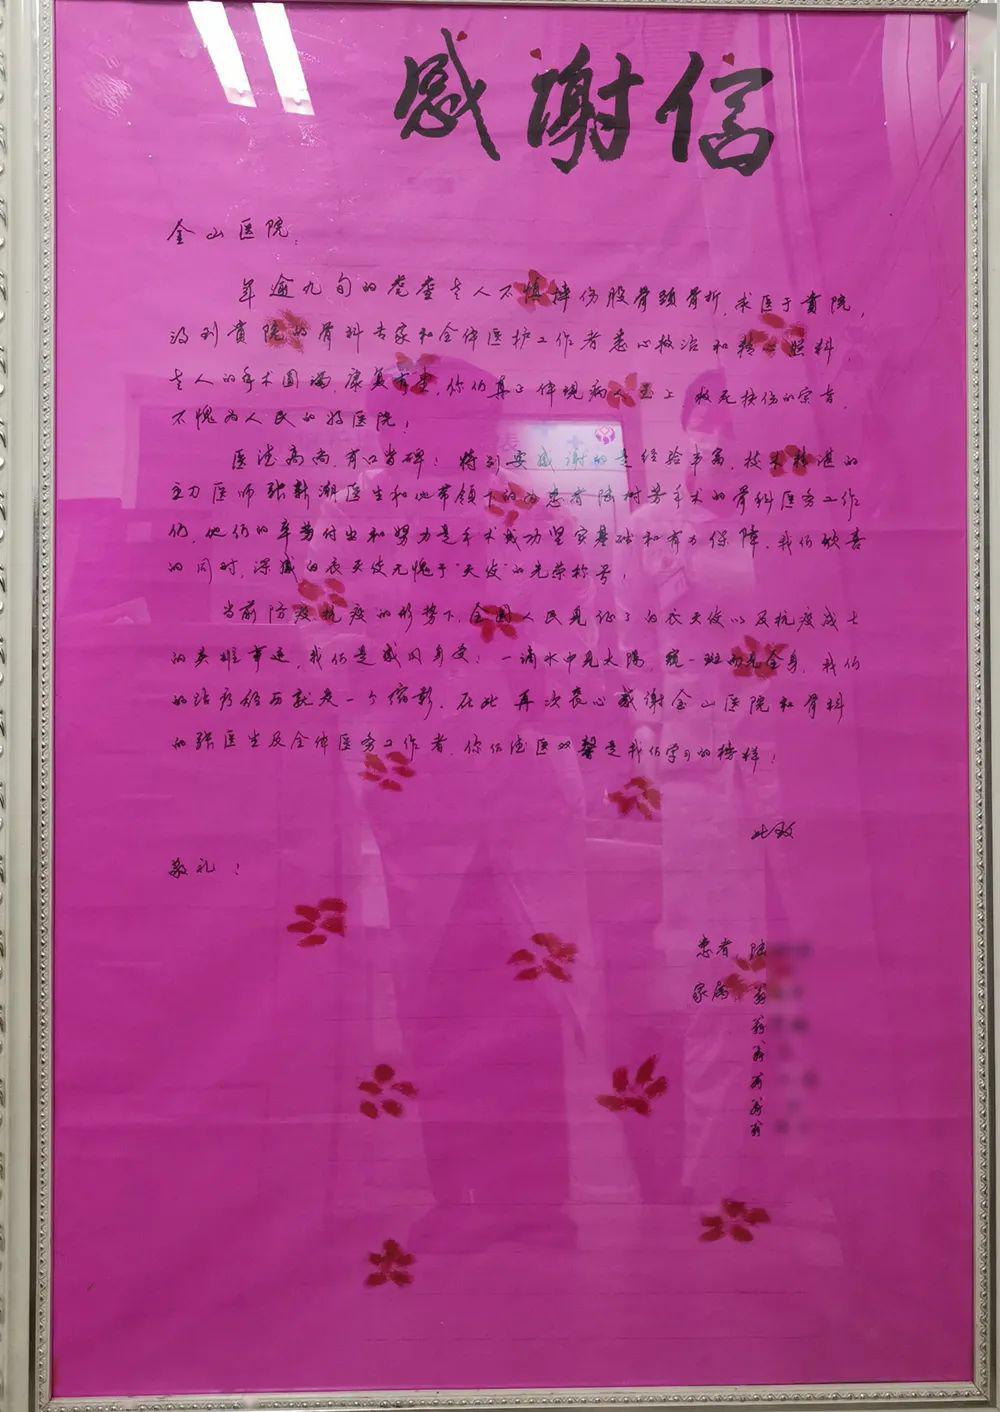 感谢信
金山医院:
年逾九旬的耄耋老人不慎摔伤股骨颈骨折,求医于贵院,
得到贵院的骨科专家和全体医护工作者悉心救治和精心照料,
老人的手术圆满,康复有望,你们真正体现病人至上 救死扶伤的宗旨,
不愧为人民的好医院!
医德高尚,有口皆碑!特别要感谢的是经验丰富,技术精湛的
主刀医师张新潮医生和他带领下的为患者陆树芳手术的骨科医务工作
们,他们的辛劳付出和努力是手术成功坚实基础和有力保障,我们欣喜
的同时,深感白衣天使无愧于"天使"的光荣称号!
当前防疫抗疫的形势下,全国人民见证了白衣天使以及抗疫战士
的英雄事迹,我们是感同身受!一滴水中见太阳,窥一斑而见全身,我们
的治疗经历就是一个缩影,在此再次衷心感谢金山医院和骨科
的张医生及全体医务工作者,你们德医双馨是我们学习的榜样!
此致
敬礼!
患者 陆
家属:翁
翁
翁
翁
翁
翁